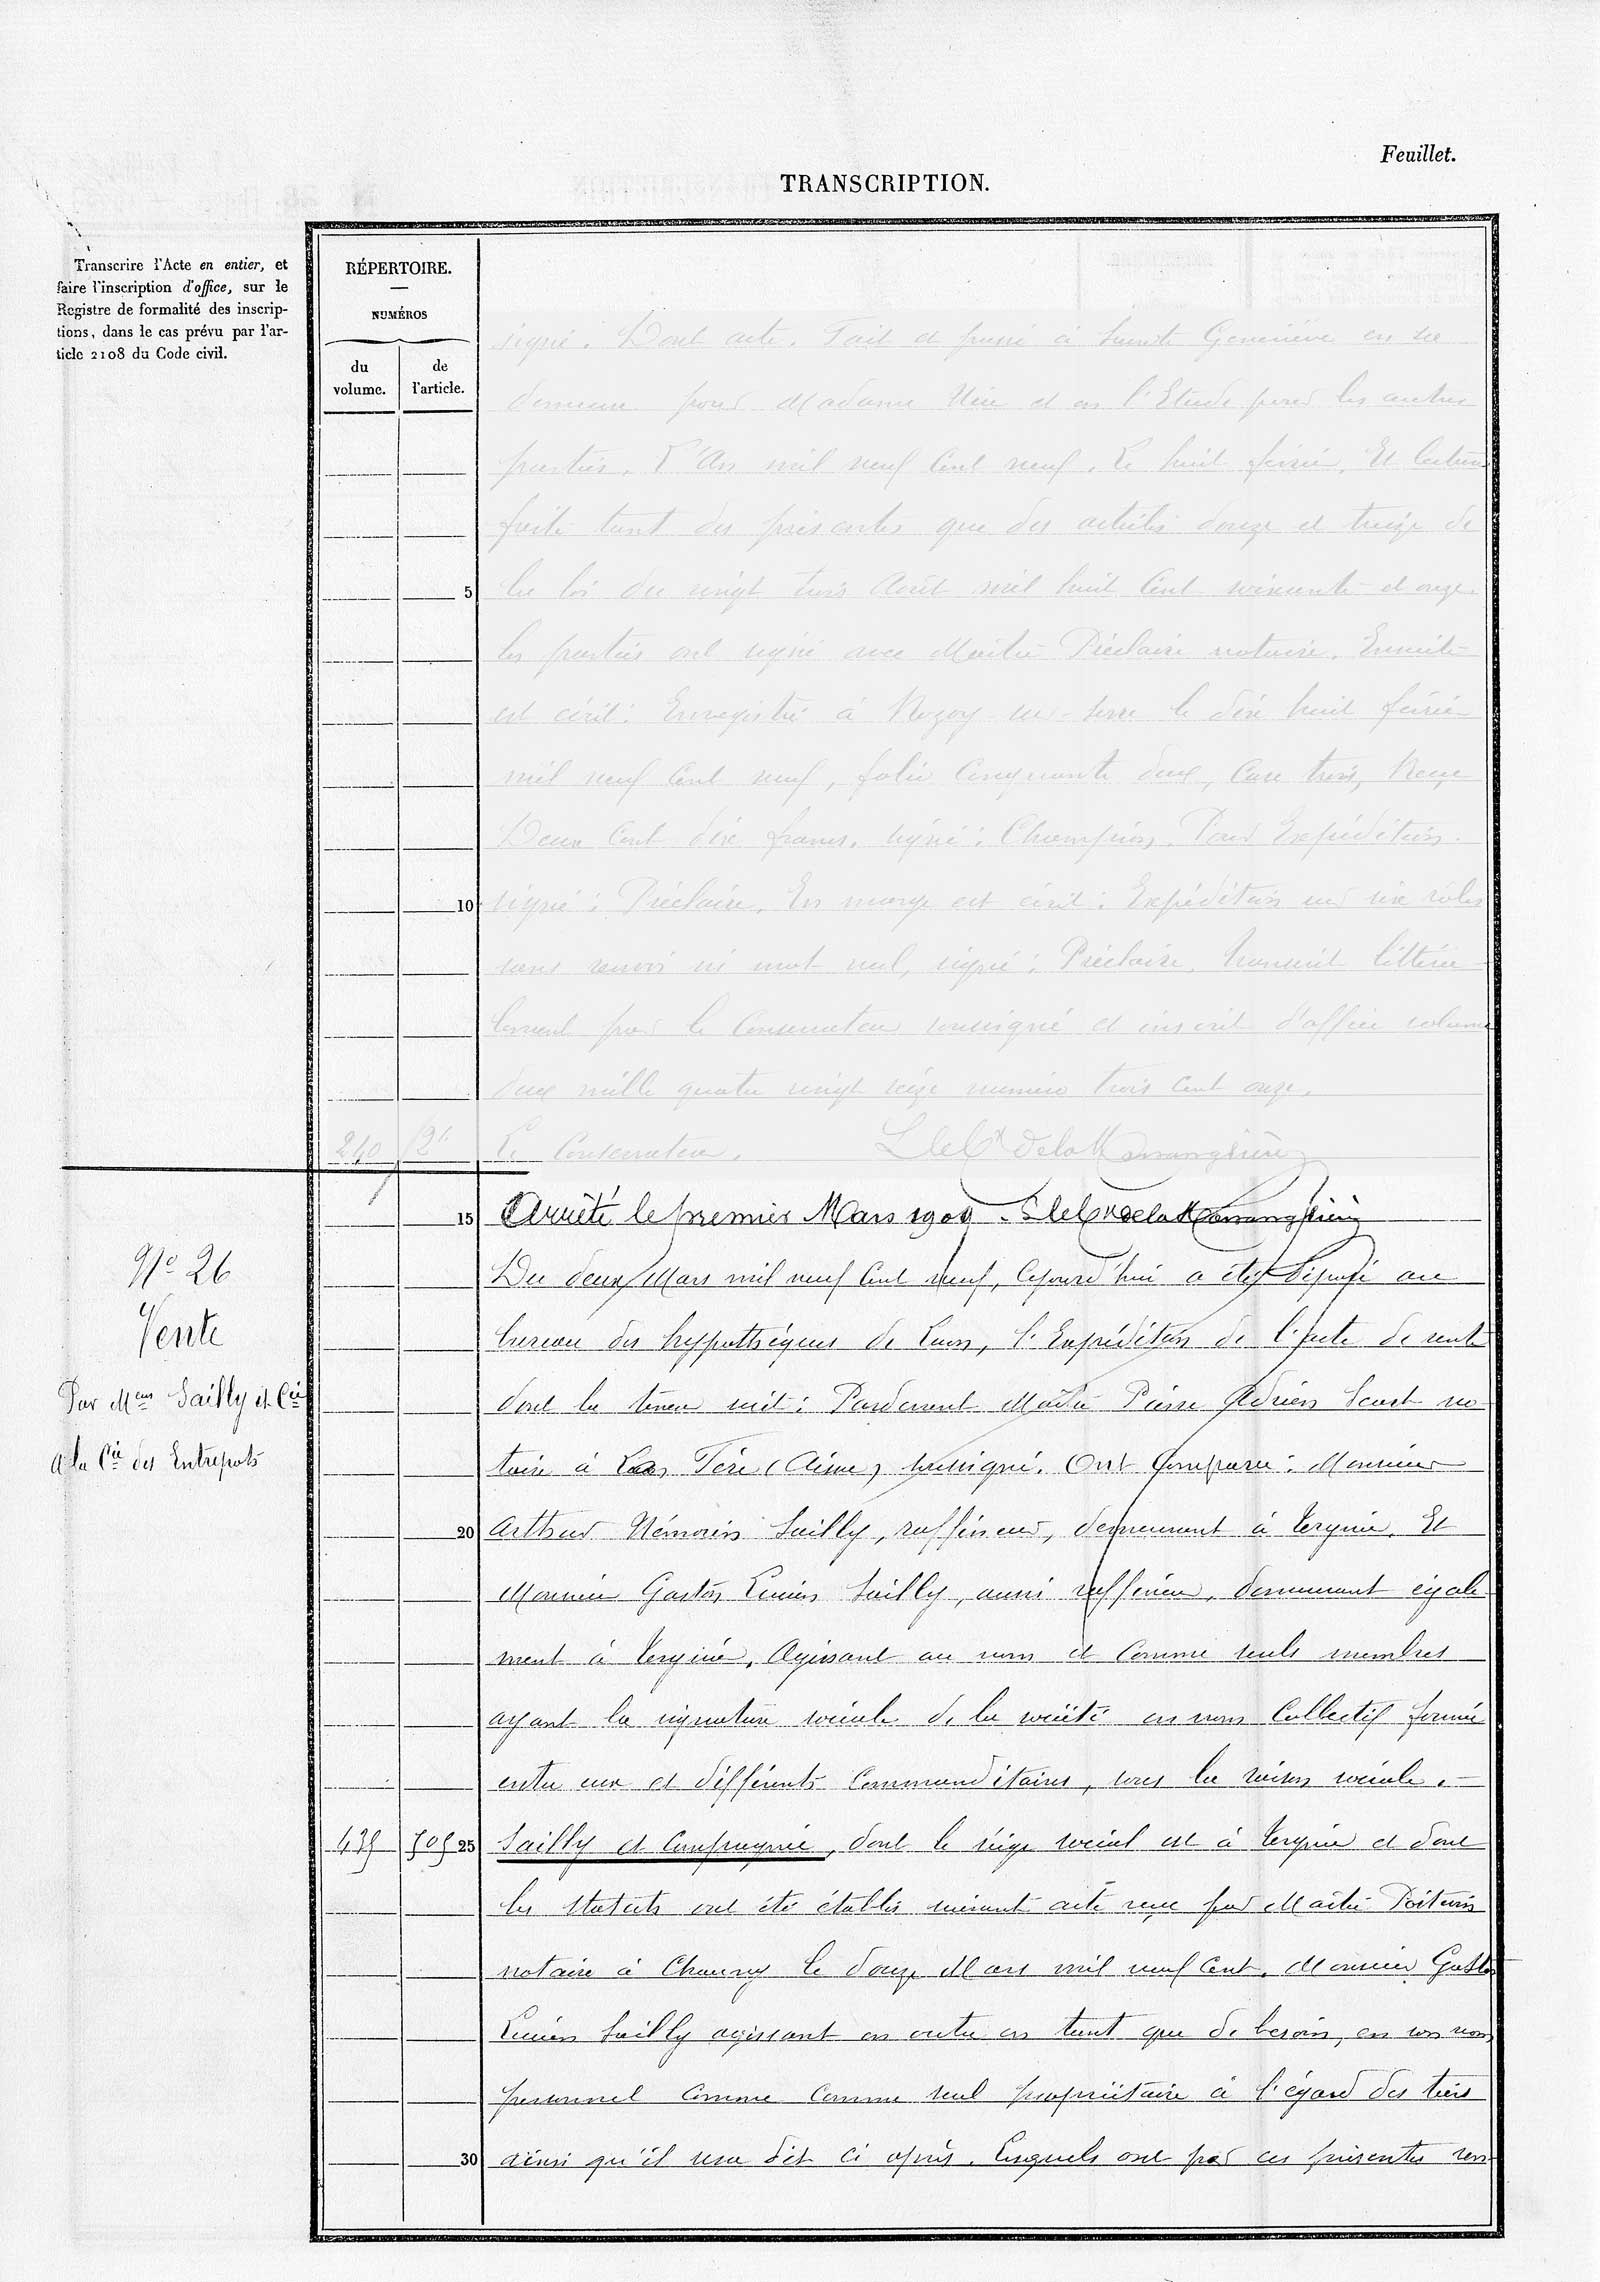 Feuillet.
TRANSCRIPTION.
Transcrire l'Acte en entier, et
faire l'inscription d'office, sur le
Registre de formalité des inscrip-
tions, dans le cas prévu par l'ar-
ticle 2108 du Code civil.
RÉPERTOIRE.
NUMÉROS
du
volume.
de
l'article.
signé. Dont acte. Fait et passé à Sainte Geneviève en sa
demeure pour Madame et en l'Etude pour les autres
parties. L'An mil neuf Cent neuf. Le huit février. Et lecture
faite tant des présentes que des articles douze et treize de
5 la loi du vingt trois Août mil huit Cent soixante et onze
les parties ont signé avec Maître Préclaire notaire. Ensuite
est écrit: Enregistré à Rozoy sur Serre le dix huit février
mil neuf Cent neuf, folio Cinquante deux, Case trois, Reçu
Deux Cent dix francs. signé: Champion. Pour Expédition.
10 signé: Préclaire. En marge est écrit: Expédition sur six rôles
sans renvoi ni mot nul, signé: Préclaire. Transcrit littéra-
lement par le Conservateur soussigné et inscrit d'office volume
deux mille quatre vingt seize numéro trois Cent onze.
240 Le Conservateur.
15 Arrêté le premier Mars 1909.
Du deux Mars mil neuf Cent neuf, Cejourd'hui a été Déposé au
bureau des hypothèques de Laon, l'Expédition de l'acte de vente
dont la teneur suit: Pardevant Maître Pierre Adrien no-
taire à La Fère (Aisne) soussigné. Ont Comparu: Monsieur
20 Arthur Némorin Sailly, raffineur, demeurant à Tergnier. Et
Monsieur Gaston Lucien Sailly, aussi raffineur, demeurant égale-
ment à Tergnier. Agissant au nom et Comme seuls membres
ayant la signature sociale de la société en nom Collectif formée
entre eux et différents Commanditaires, sous la raison sociale.
439 509 25 Sailly et Compagnie, dont le siège social est à Tergnier et dont
les statuts ont été établis suivant acte reçu par Maître Poitevin
notaire à Chauny le douze Mars mil neuf Cent. Monsieur Gaston
Lucien Sailly agissant en outre en tant que de besoin, en son nom
personnel Comme Comme seul propriétaire à l'égard des tiers
30 ainsi qu'il sera dit Ci après. Lesquels ont par ces présentes ven-
No 26
Vente
Par Mrs Sailly et Cie
A la Cie des Entrepots